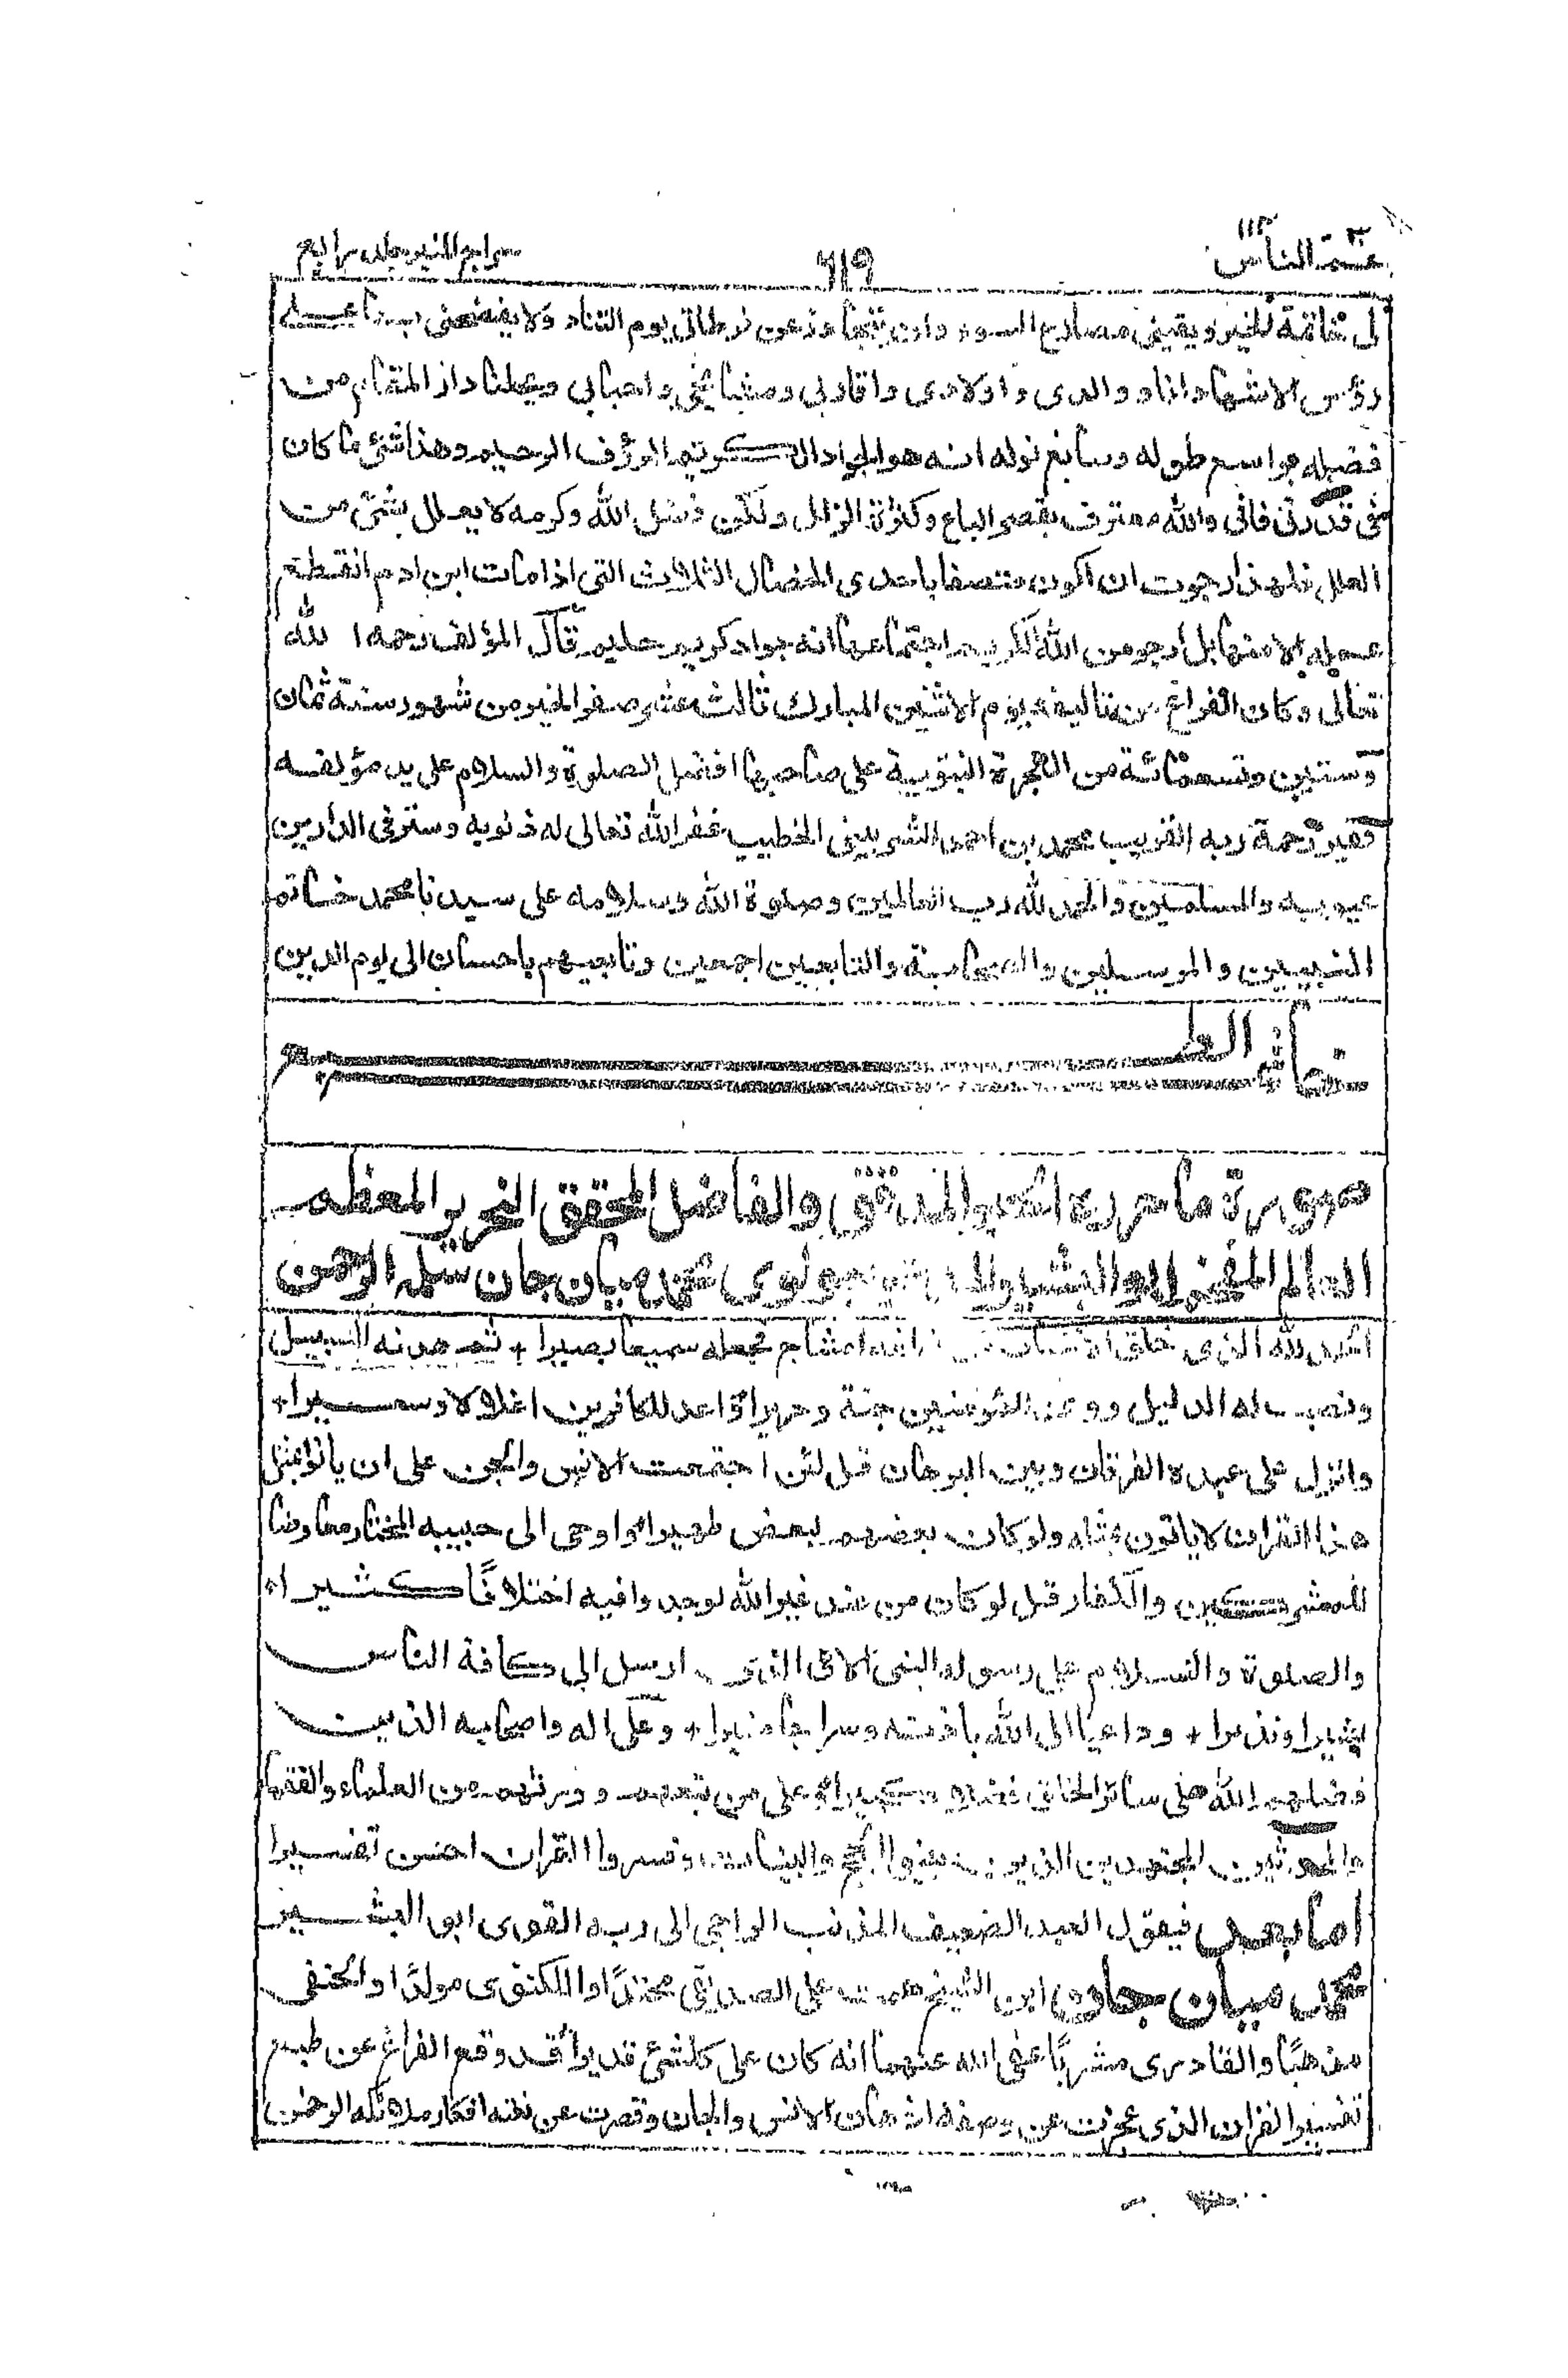 عمّ الناس ١١٤
٦١٩
سراج المنير جلد رابع
لى خاتمة للخير ويقينى مصارع السوء وان يتجاوز عن فرطاتى يوم التناد ولا يفضحنى بها على
رؤس الاشهاد انا و والدى و اولادى واقاربى ومشايخى واحبابى ويحلنا دار المقام من
فضله بواسع طوله وسابغ نوله انه هو الجواد الكريم الرؤف الرحيم وهذا شئ ما كان
فى قدرتى فانى والله معترف بقصر الباع وكثرة الزلل ولكن فضل الله وكرمه لا يعلل بشئ من
العلل فلهذا رجوت ان اكون متصفا باحدى الخصال الثلاث التى اذا مات ابن ادم انقطع
عمله الا منها بل ارجو من الله الكريم اجتماعها انه جواد كريم حليم قال المؤلف رحمه الله
تعالى وكان الفراغ من تاليفه يوم الاثنين المبارك ثالث عشر صفر الخير من شهور سنة ثمان
وستين وتسعمائة من الهجرة النبوية على صاحبها افضل الصلوة والسلام على يد مؤلفه
فقير رحمة ربه القريب محمد بن احمد الشربينى الخطيب غفر الله تعالى له ذنوبه وستر فى الدارين
عيوبه والمسلمين والحمد لله رب العالمين وصلوة الله وسلامه على سيدنا محمد خاتم
النبيين والمرسلين واله وصحابته والتابعين اجمعين وتابعيهم باحسان الى يوم الدين
خاتمة الطبع
صورة ما حرره الحبر المدقق والفاضل المحقق النحرير المعظم
العالم المفخم ابو البشير مولوى محمد ميان جان سلمه الرحمن
الحمد لله الذى خلق الانسان من نطفة امشاج فجعله سميعا بصيرا + ثم هدنه السبيل
ونصب له الدليل ووعد المؤمنين جنة وحريرا واعد للكافرين اغلالا وسعيرا+
وانزل على عبده الفرقان وبين البرهان قل لئن اجتمعت الانس والجن على ان يأتوا بمثل
هذا القران لا ياتون بمثله ولو كان بعضهم لبعض ظهيرا+ واوحى الى حبيبه المختار معارضا
للمشركين والكفار قل لو كان من عند غير الله لوجدوا فيه اختلافًا كثيرا+
والصلوة والسلام على رسوله النبى الامى الذى ارسل الى كافة الناس
بشيرا ونذيرا + وداعيا الى الله باذنه وسراجا منيرا + وعلى اله واصحابه الذين
فضلهم الله على سائر الخلق فضلا كبيرا+ وعلى من تبعهم وورثهم من العلماء والفقهاء
والمحدثين المجتهدين الذين بينوا الحجج والبينات وفسروا القران احسن تفسيرا
اما بعد فيقول العبد الضعيف المذنب الراجى الى ربه القوى ابو البشير
محمد ميان جان ابن الشيخ على الصديقى محتدًا واللكنوى مولدًا والحنفى
مذهبًا والقادرى مشربًا عفى الله عنهما انه كان على كلشئ قديرا+ قد وقع الفراغ عن طبع
تفسير القران الذى عجزت عن وصفه اذهان الانس والجان وقصرت عن نعته افكار ملائكه الرحمن